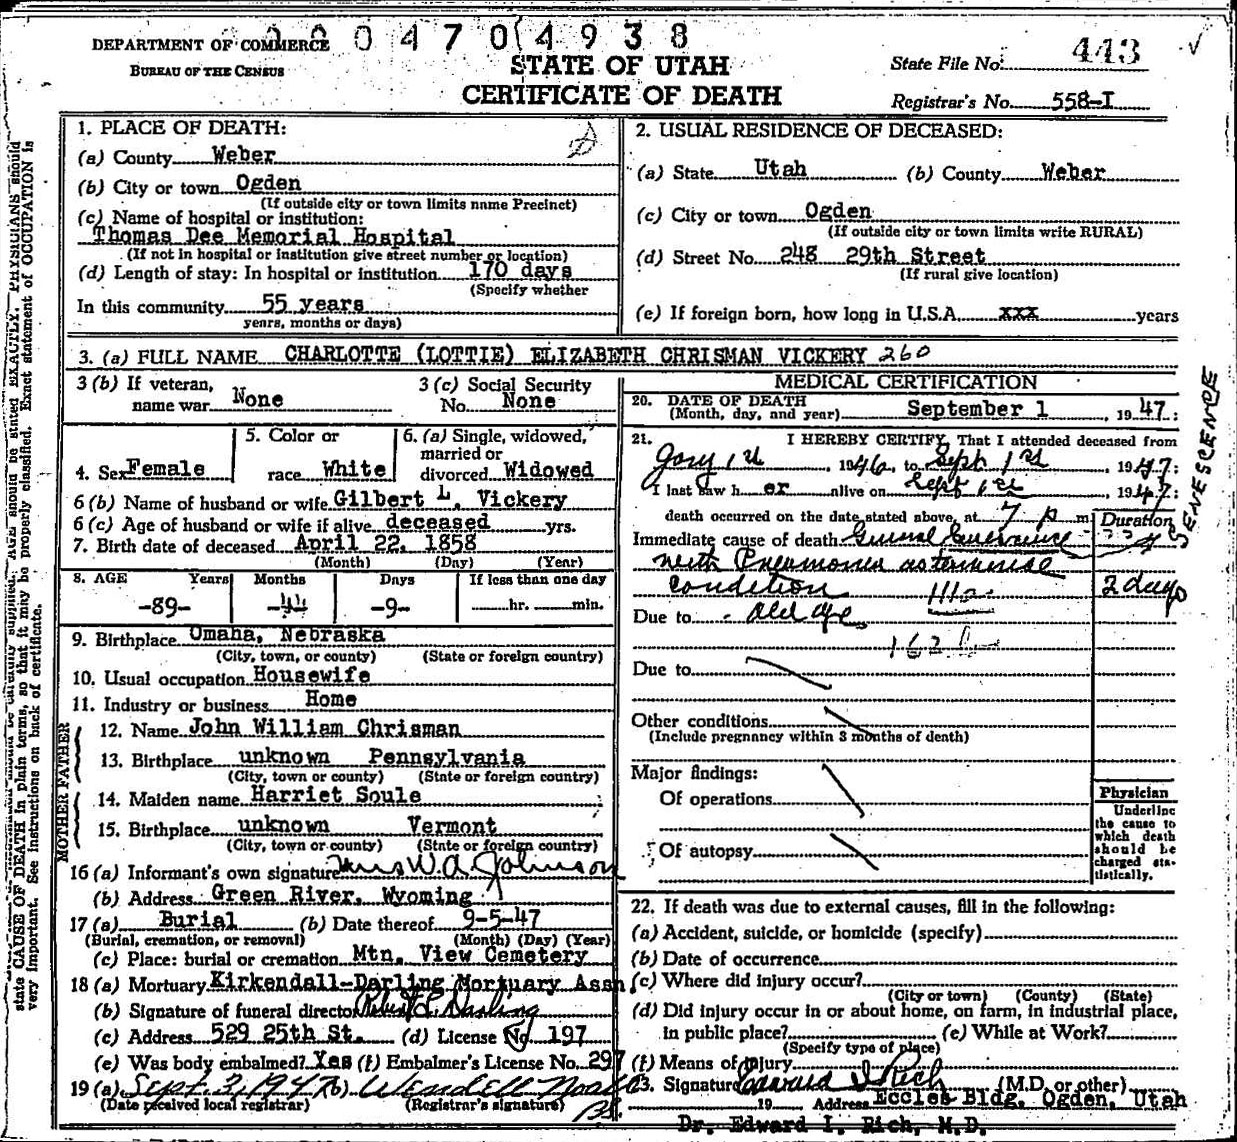 0004704938
DEPARTMENT OF COMMERCE
BUREAU OF THE CENSUS
STATE OF UTAH
CERTIFICATE OF DEATH
State File No. 443
Registrar's No. 558-I
1. PLACE OF DEATH:
(a) County Weber
(b) City or town Ogden
(If outside city or town limits name Precinct)
(c) Name of hospital or institution:
Thomas Dee Memorial Hospital
(If not in hospital or institution give street number or location)
(d) Length of stay: In hospital or institution 170 days
(Specify whether
In this community 55 years
years, months or days)
2. USUAL RESIDENCE OF DECEASED:
(a) State Utah (b) County Weber
(c) City or town Ogden
(If outside city or town limits write RURAL)
(d) Street No. 248 29th Street
(If rural give location)
(e) If foreign born, how long in U.S.A. xxx years
3. (a) FULL NAME CHARLOTTE (LOTTIE) ELIZABETH CHRISMAN VICKERY 260
3 (b) If veteran, name war None
3 (c) Social Security No. None
4. Sex Female
5. Color or race White
6. (a) Single, widowed, married or divorced Widowed
6 (b) Name of husband or wife Gilbert L. Vickery
6 (c) Age of husband or wife if alive deceased yrs.
7. Birth date of deceased April 22, 1858
(Month) (Day) (Year)
8. AGE Years Months Days If less than one day
-89- -4- -9- hr. min.
9. Birthplace Omaha, Nebraska
(City, town, or county) (State or foreign country)
10. Usual occupation Housewife
11. Industry or business Home
FATHER
12. Name John William Chrisman
13. Birthplace unknown Pennsylvania
(City, town or county) (State or foreign country)
MOTHER
14. Maiden name Harriet Soule
15. Birthplace unknown Vermont
(City, town or county) (State or foreign country)
16 (a) Informant's own signature Mrs W. A. Johnson
(b) Address Green River, Wyoming
17 (a) Burial (b) Date thereof 9-5-47
(Burial, cremation, or removal) (Month) (Day) (Year)
(c) Place: burial or cremation Mtn. View Cemetery
18 (a) Mortuary Kirkendall-Darling Mortuary Assn.
(b) Signature of funeral director Robert L. Darling
(c) Address 529 25th St. (d) License No. 197
(e) Was body embalmed? Yes (f) Embalmer's License No. 297
19 (a) Sept. 3, 1947 (b) Wendell
(Date received local registrar) (Registrar's signature)
MEDICAL CERTIFICATION
20. DATE OF DEATH
(Month, day, and year) September 1, 1947:
21. I HEREBY CERTIFY, That I attended deceased from
1946, to Sept 1st, 1947:
I last saw her alive on Sept 1st, 1947:
death occurred on the date stated above, at 7 p m
Duration
Immediate cause of death General
with Pneumonia as terminal
condition 2 days
Due to - old age
162
Due to
Other conditions
(Include pregnancy within 3 months of death)
Major findings:
Of operations
Of autopsy
Physician
Underline
the cause to
which death
should be
charged sta-
tistically.
22. If death was due to external causes, fill in the following:
(a) Accident, suicide, or homicide (specify)
(b) Date of occurrence
(c) Where did injury occur?
(City or town) (County) (State)
(d) Did injury occur in or about home, on farm, in industrial place,
in public place? (e) While at Work?
(Specify type of place)
(f) Means of injury
23. Signature Edward I Rich (M.D. or other)
19 Address Eccles Bldg. Ogden, Utah
Dr. Edward I. Rich, M.D.
SENESCENCE
AGE should be stated EXACTLY. PHYSICIANS should
state CAUSE OF DEATH in plain terms, so that it may be properly classified. Exact statement of OCCUPATION is
very important. See instructions on back of certificate.